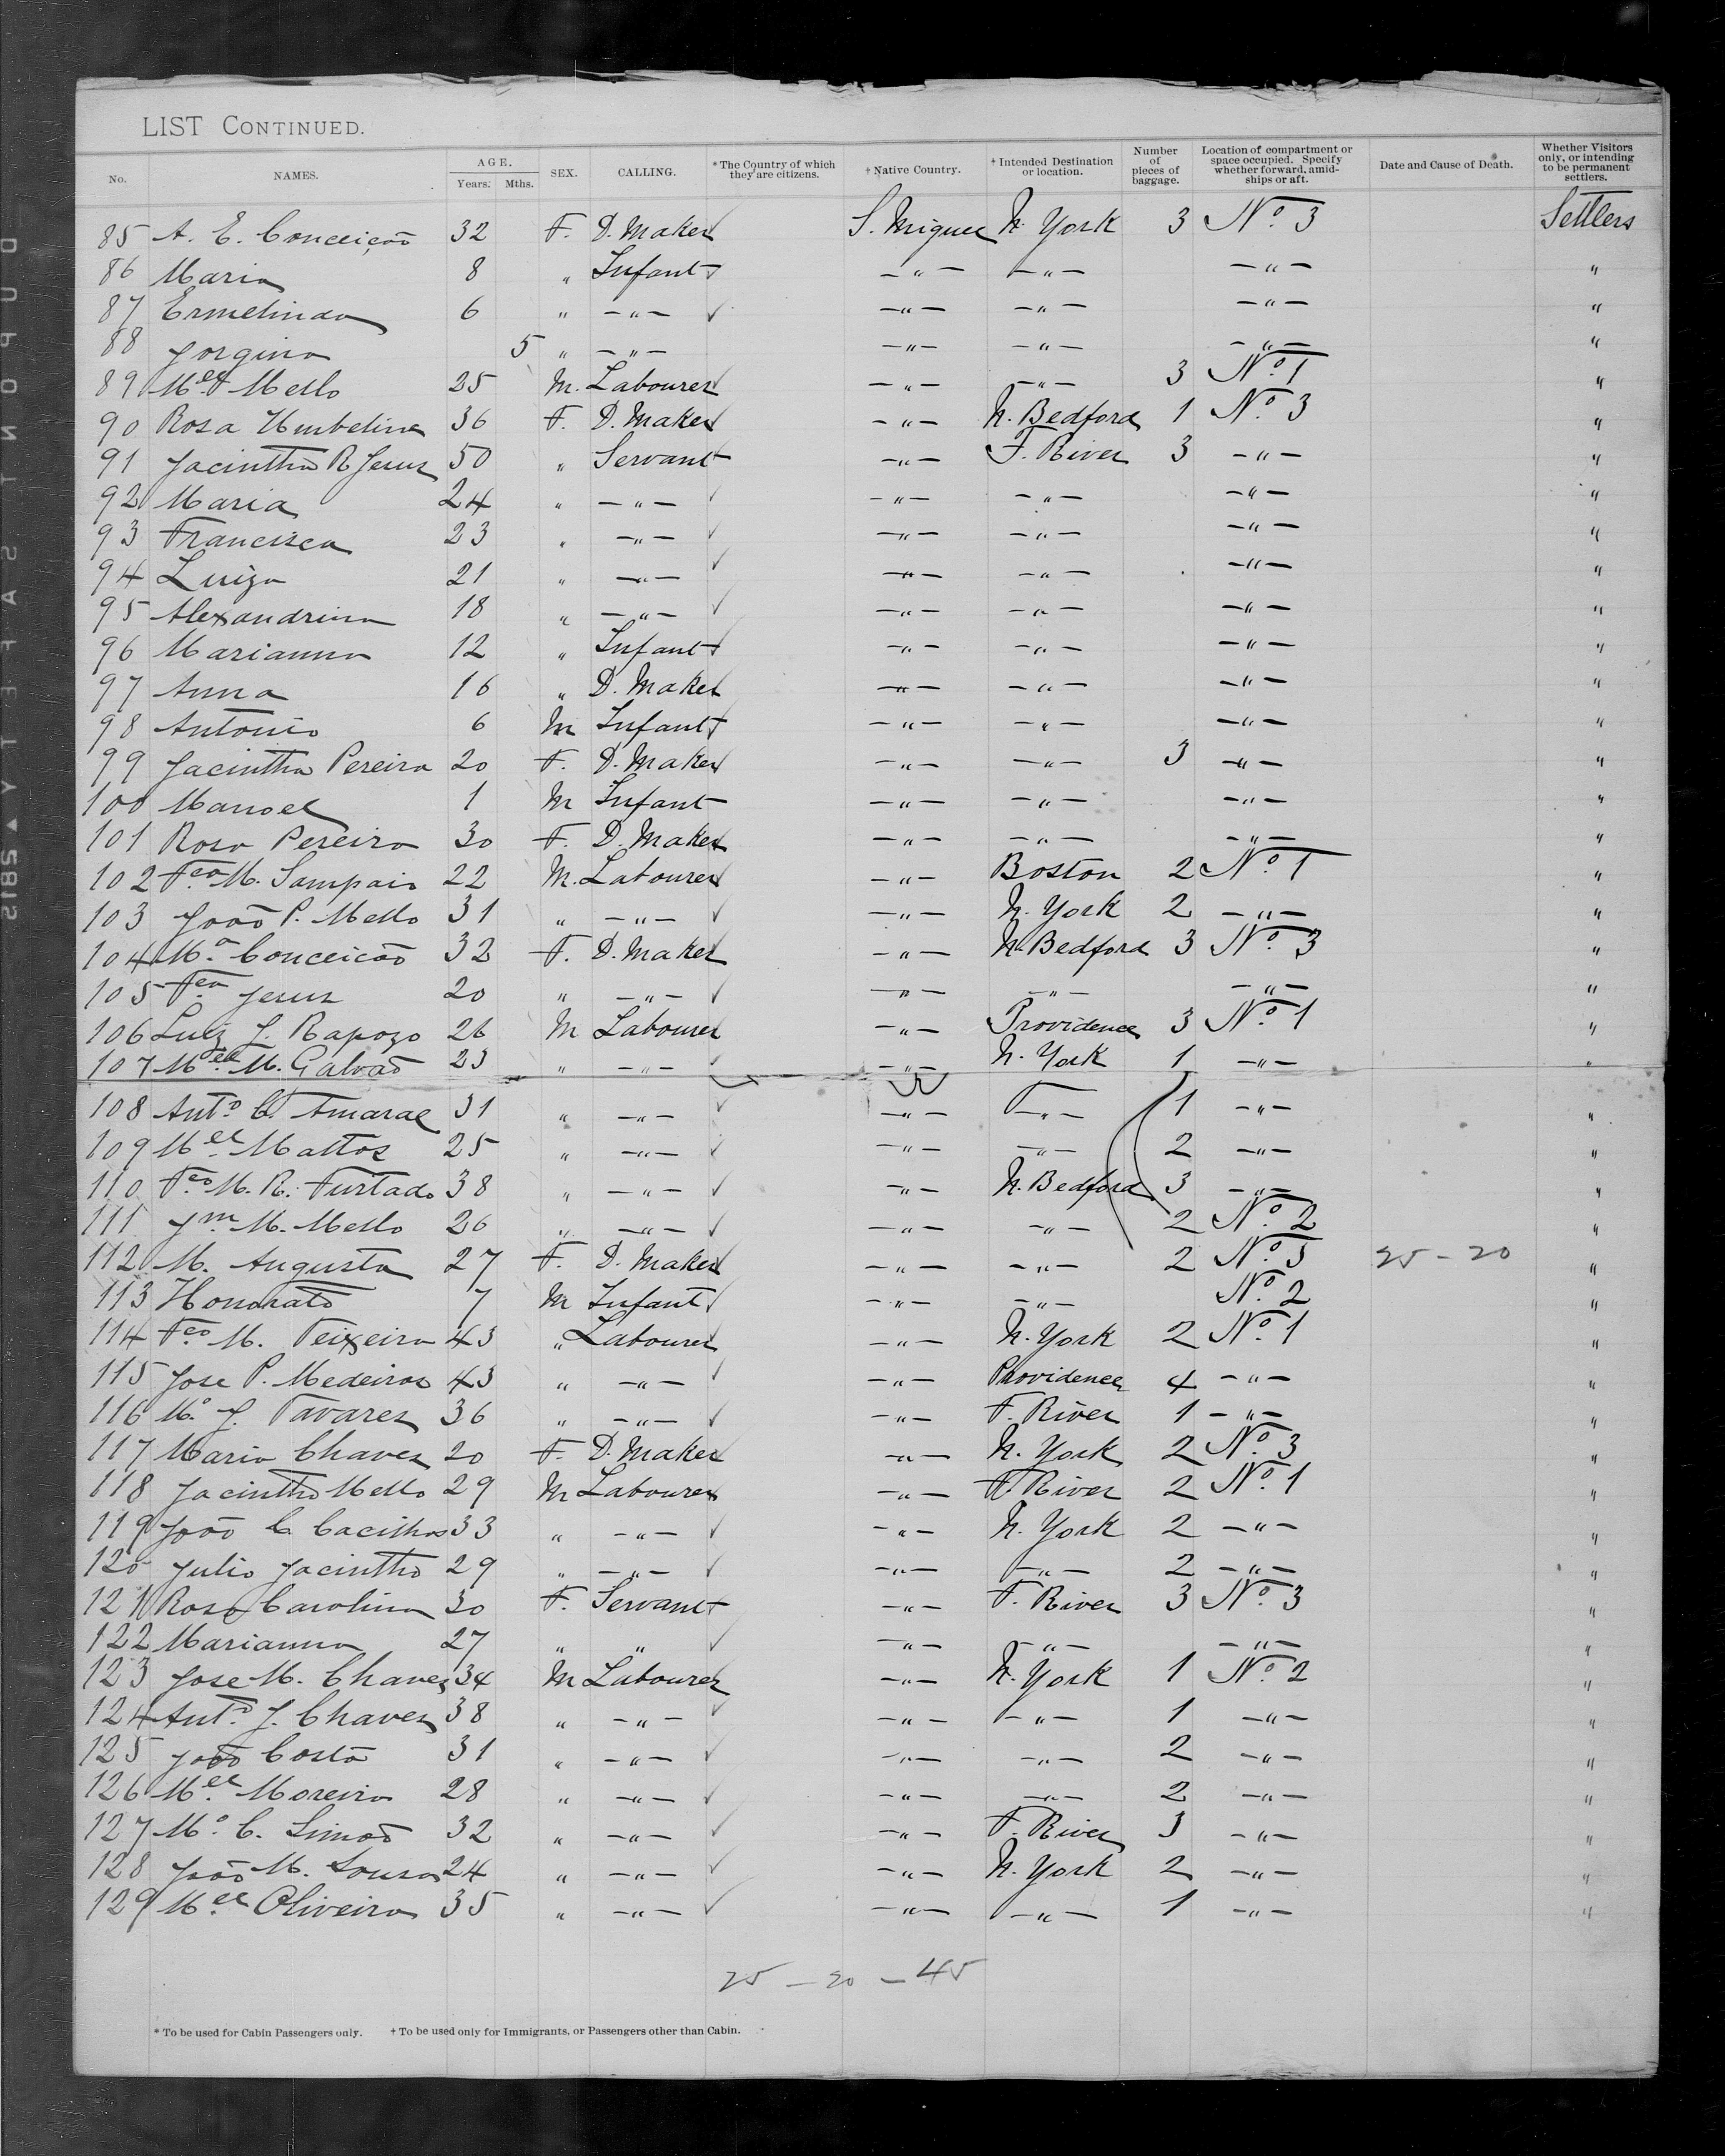 LIST CONTINUED.
No. NAMES. AGE. Years. Mths. SEX. CALLING. * The Country of which they are citizens. † Native Country. † Intended Destination or location. Number of pieces of baggage. Location of compartment or space occupied. Specify whether forward, amidships or aft. Date and Cause of Death. Whether Visitors only, or intending to be permanent settlers.
85 A. E. Conceição 32 F. D. Maker S. Miguel N. York 3 Nº 3 Settlers
86 Maria 8 " Infant —"— —"— —"— "
87 Ermelinda 6 " —"— —"— —"— —"— "
88 Jorgina 5 " —"— —"— —"— —"— "
89 Mel Mello 25 M. Labourer —"— —"— 3 Nº 1 "
90 Rosa Umbelina 36 F. D. Maker —"— N. Bedford 1 Nº 3 "
91 Jacintha R Jesus 50 " Servant —"— F. River 3 —"— "
92 Maria 24 " —"— —"— —"— —"— "
93 Francisca 23 " —"— —"— —"— —"— "
94 Luiza 21 " —"— —"— —"— —"— "
95 Alexandrina 18 " —"— —"— —"— —"— "
96 Marianna 12 " Infant —"— —"— —"— "
97 Anna 16 " D. Maker —"— —"— —"— "
98 Antonio 6 M Infant —"— —"— —"— "
99 Jacintha Pereira 20 F. D. Maker —"— —"— 3 —"— "
100 Manoel 1 M Infant —"— —"— —"— "
101 Rosa Pereira 30 F. D. Maker —"— —"— —"— "
102 Fco M. Sampaio 22 M. Labourer —"— Boston 2 Nº 1 "
103 João P. Mello 31 " —"— —"— N. York 2 —"— "
104 Mª Conceicão 32 F. D. Maker —"— N. Bedford 3 Nº 3 "
105 Fca Jesus 20 " —"— —"— —"— —"— "
106 Luiz J. Rapozo 26 M Labourer —"— Providence 3 Nº 1 "
107 Mel M. Galvão 23 " —"— —"— N. York 1 —"— "
108 Antº C. Amaral 31 " —"— —"— —"— 1 —"— "
109 Mel Mattos 25 " —"— —"— —"— 2 —"— "
110 Fco M. R. Furtado 38 " —"— —"— N. Bedford 3 —"— "
111 Jm M. Mello 26 " —"— —"— —"— 2 Nº 2 "
112 M. Augusta 27 F. D. Maker —"— —"— 2 Nº 3 25 - 20 "
113 Honorato 7 M Infant —"— —"— Nº 2 "
114 Fco M. Teixeira 43 " Labourer —"— N. York 2 Nº 1 "
115 Jose P. Medeiros 43 " —"— —"— Providence 4 —"— "
116 Mº J. Tavares 36 " —"— —"— F. River 1 —"— "
117 Maria Chaves 20 F. D. Maker —"— N. York 2 Nº 3 "
118 Jacintho Mello 29 M Labourer —"— F. River 2 Nº 1 "
119 João C. Cacilhas 33 " —"— —"— N. York 2 —"— "
120 Julio Jacintho 29 " —"— —"— —"— 2 —"— "
121 Rosa Carolina 30 F. Servant —"— F. River 3 Nº 3 "
122 Marianna 27 " " —"— —"— —"— "
123 Jose M. Chaves 34 M Labourer —"— N. York 1 Nº 2 "
124 Antº J. Chaves 38 " —"— —"— —"— 1 —"— "
125 João Costa 31 " —"— —"— —"— 2 —"— "
126 Mel Moreira 28 " —"— —"— —"— 2 —"— "
127 Mº C. Simoō 32 " —"— —"— F. River 3 —"— "
128 João M. Sousa 24 " —"— —"— N. York 2 —"— "
129 Mel Oliveira 35 " —"— —"— —"— 1 —"— "
25 - 20 - 45
* To be used for Cabin Passengers only. † To be used only for Immigrants, or Passengers other than Cabin.